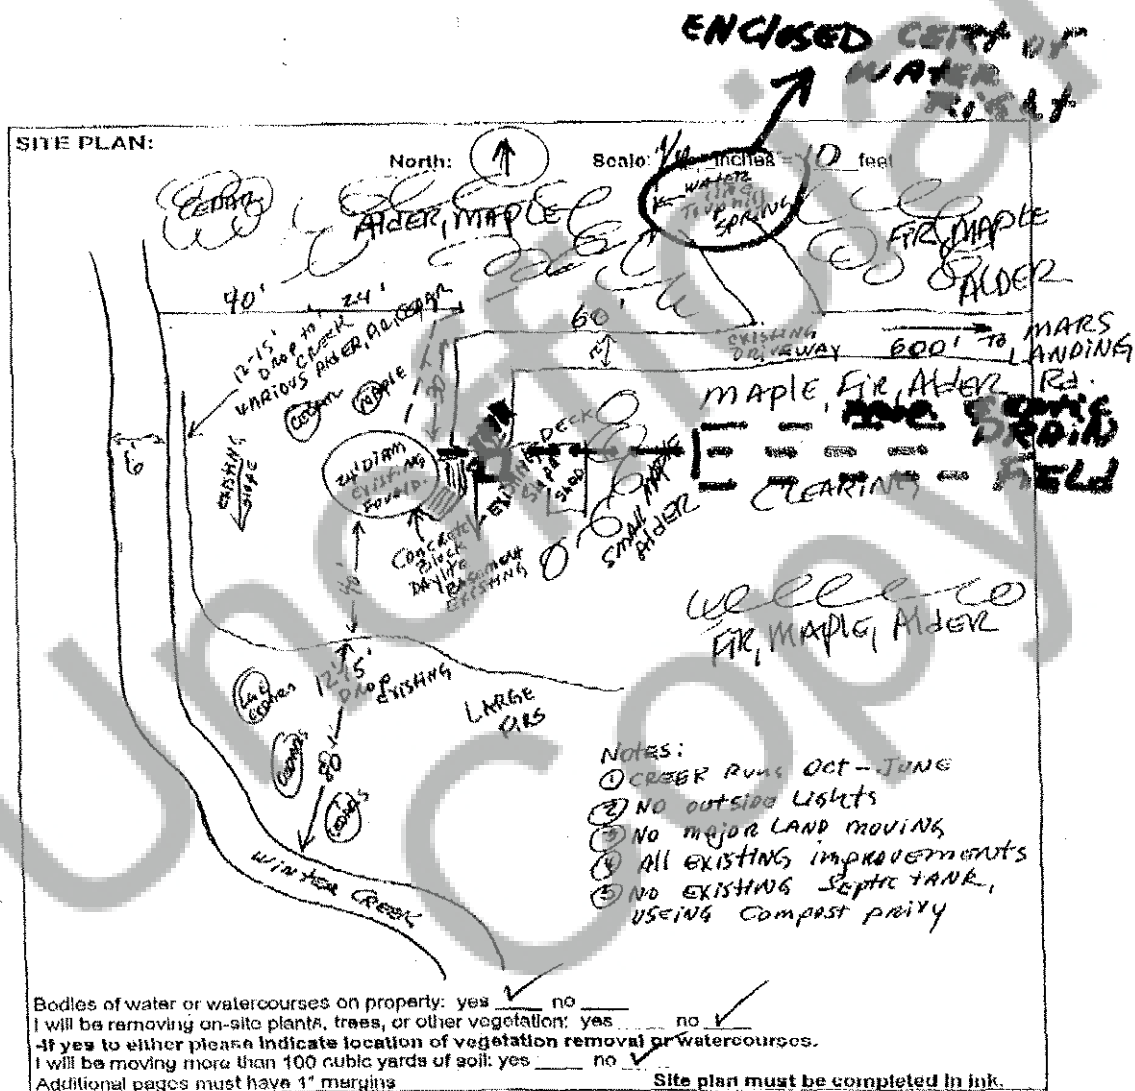 ENCLOSED CERT OF
WATER
RIGHT
SITE PLAN:
North:
Scale: 1/4 inches = 10 feet
CEDAR
ALDER, MAPLE
WATER
LINE
TO
SPRING
FIR, MAPLE
ALDER
40'
24'
60'
12-15'
DROP TO
CREEK
VARIOUS ALDER, FIR, CEDAR
CEDAR
MAPLE
30'
EXISTING
DRIVEWAY
600' TO MARS
LANDING
Rd.
MAPLE, Fir, Alder
SEPTIC
DRAIN
FIELD
CLEARING
6'
EXISTING
SLOPE
24' DIAM
EXISTING
FOUND.
DECK
EXISTING
SHED
SMALL MAPLE
AlDER
CONCRETE
Block
DAYLITE
BASEMENT
EXISTING
40'
FIR, MAPLE, AlDER
12'-15'
DROP
EXISTING
CEDARS
LARGE
FIRS
CEDARS
80'
CEDARS
WINTER CREEK
Notes:
① CREEK RUNS OCT - JUNE
② NO outside Lights
③ No major LAND moving
④ All EXISTING improvements
⑤ NO EXISTING Septic tANK,
USEING Compost privy
Bodies of water or watercourses on property: yes ✓ no ____
I will be removing on-site plants, trees, or other vegetation: yes ____ no ✓
-If yes to either please indicate location of vegetation removal or watercourses.
I will be moving more than 100 cubic yards of soil: yes ____ no ✓
Additional pages must have 1" margins
Site plan must be completed in ink.
Unofficial
Copy